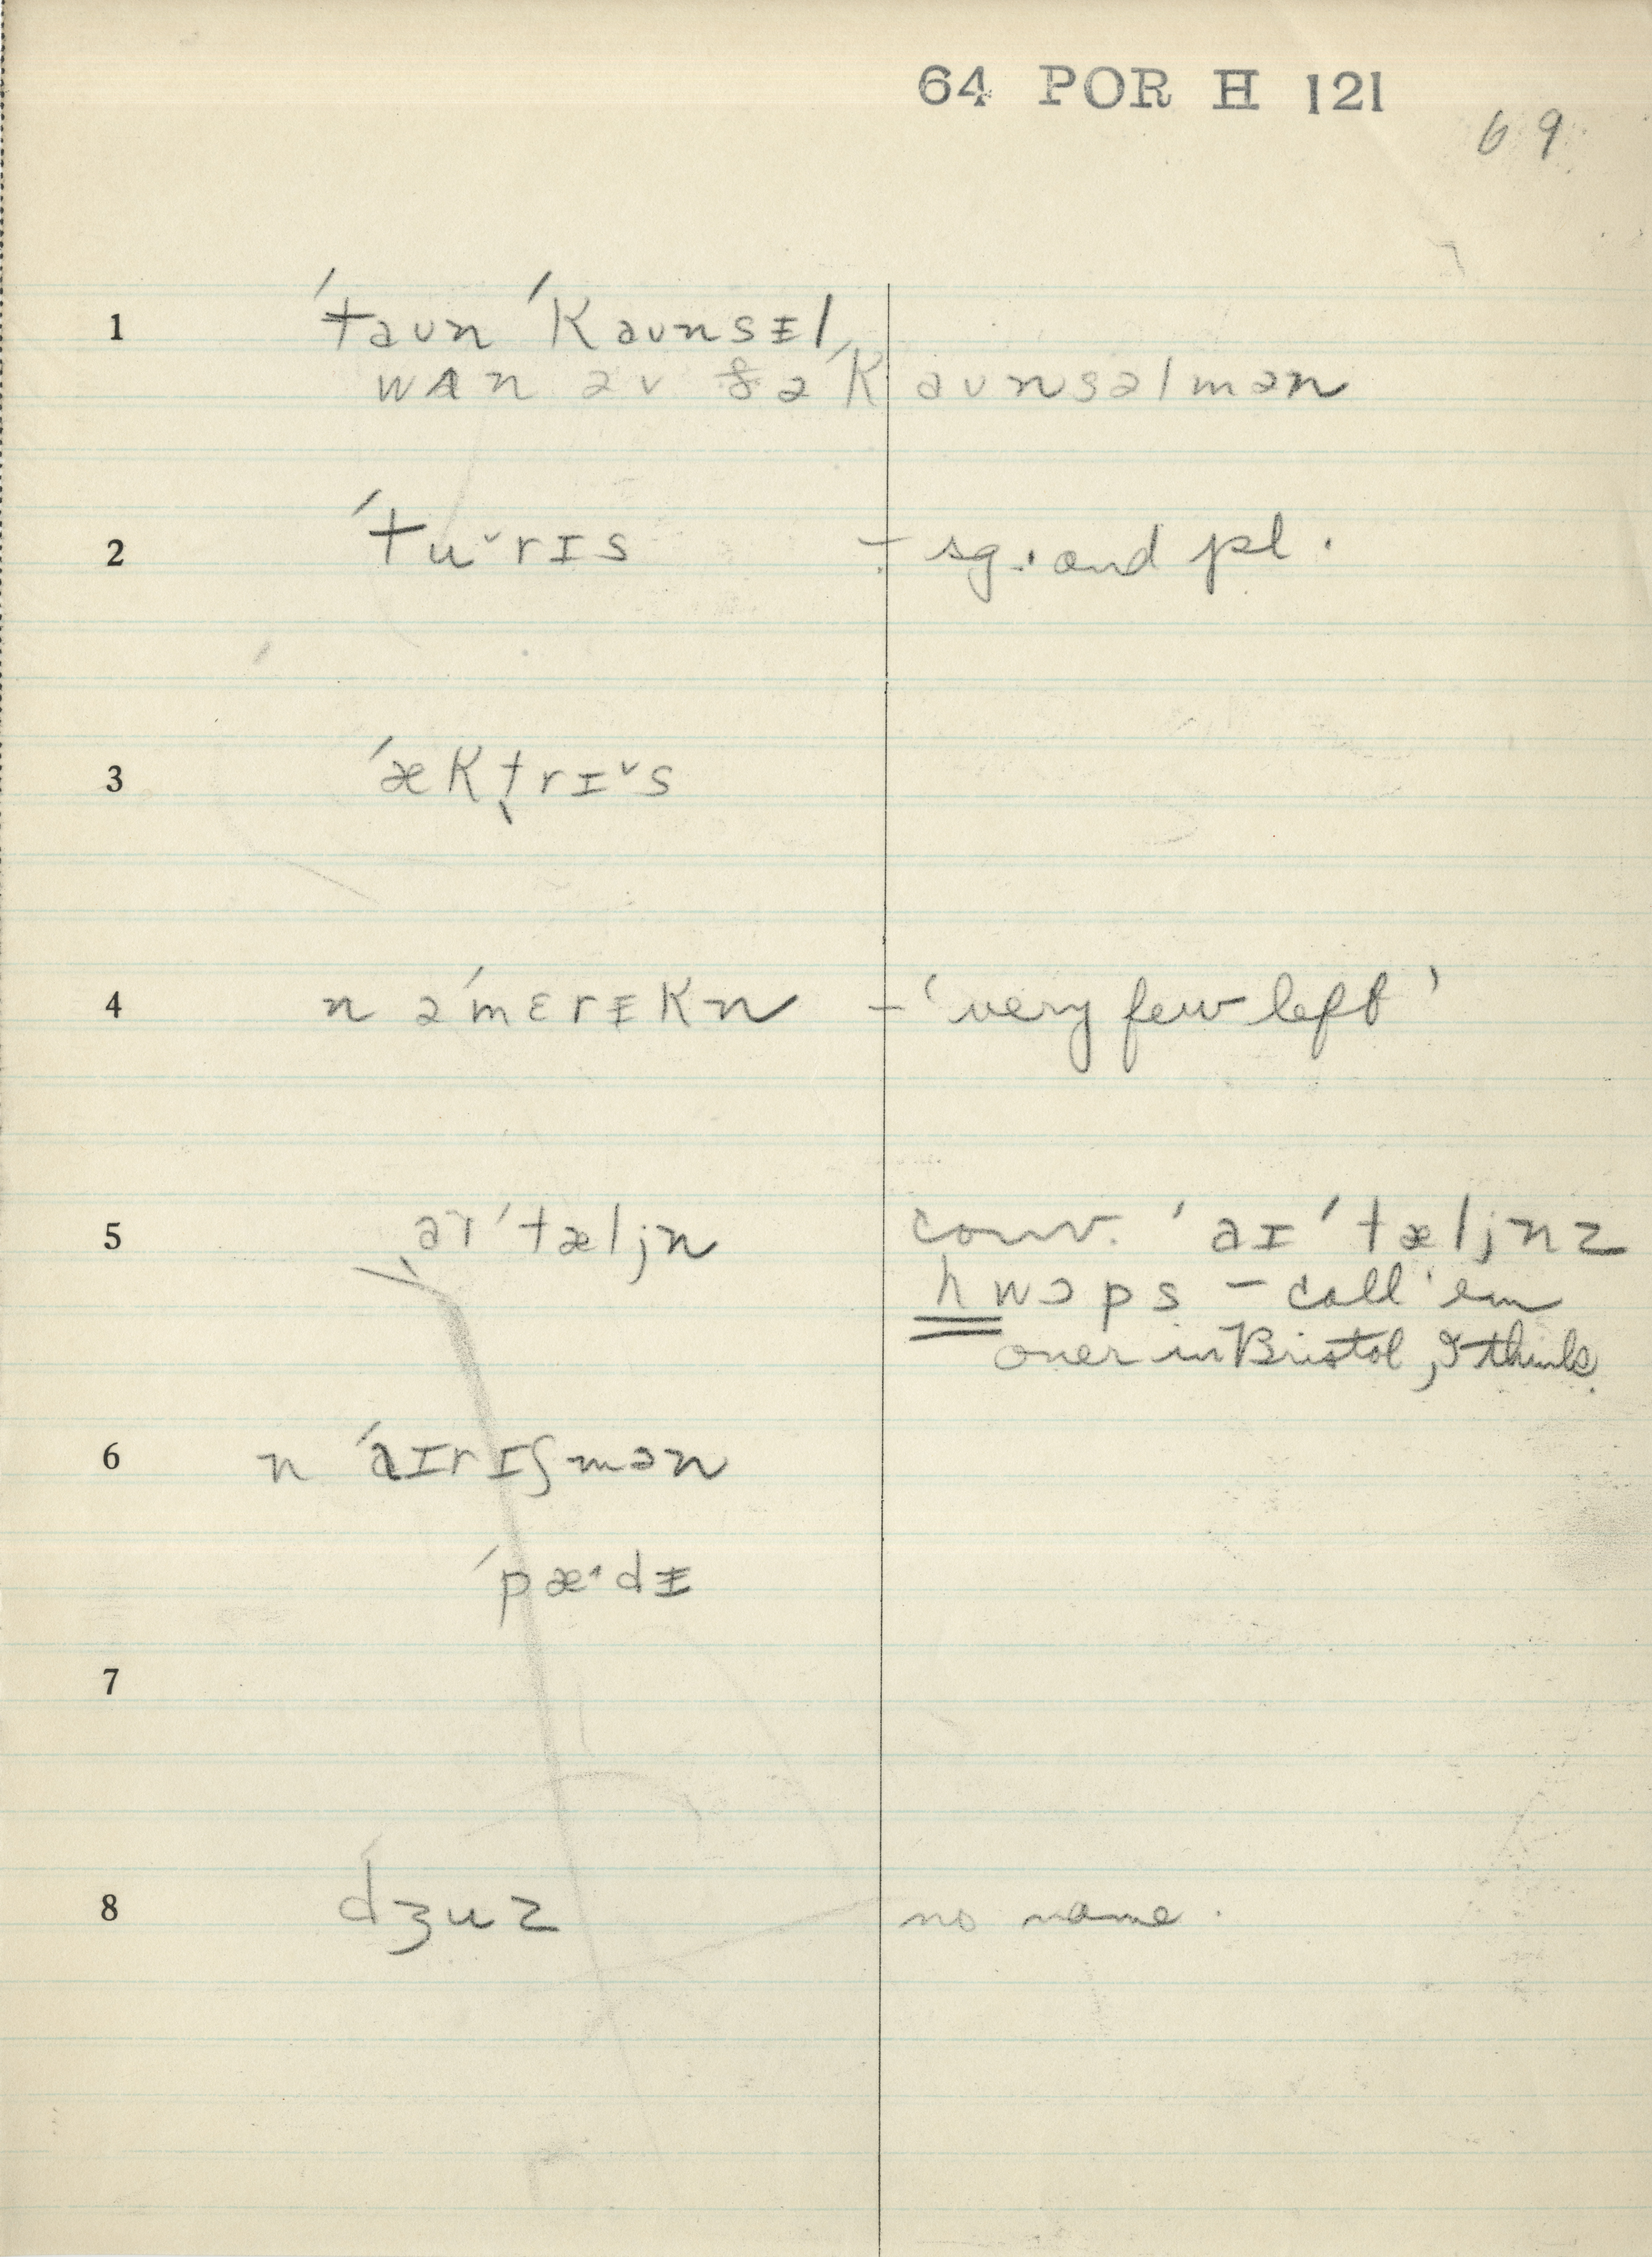 64 POR H 121
69
1 ˈtaʊn ˈkaʊnsᵻl
wʌn əv ðə ˈkaʊnsəlmən
2 ˈtu˅rɪs - sg. and pl.
3 ˈæktrɪ˅s
4 n əˈmɛrᵻkn - 'very few left'
5 aɪˈtæljn conv. ˈaɪˈtæljnz
hwɔps - call 'em
over in Bristol, I think.
6 n ˈaɪrɪʃmən
ˈpæˑdᵻ
7
8 dʒuz no name.